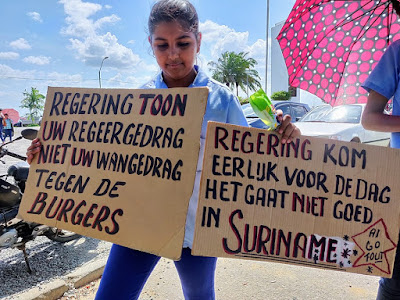 REGERING TOON
UW REGEERGEDRAG
NIET UW WANGEDRAG
TEGEN DE
BURGERS
REGERING KOM
EERLIJK VOOR DE DAG
HET GAAT NIET GOED
IN SURINAME